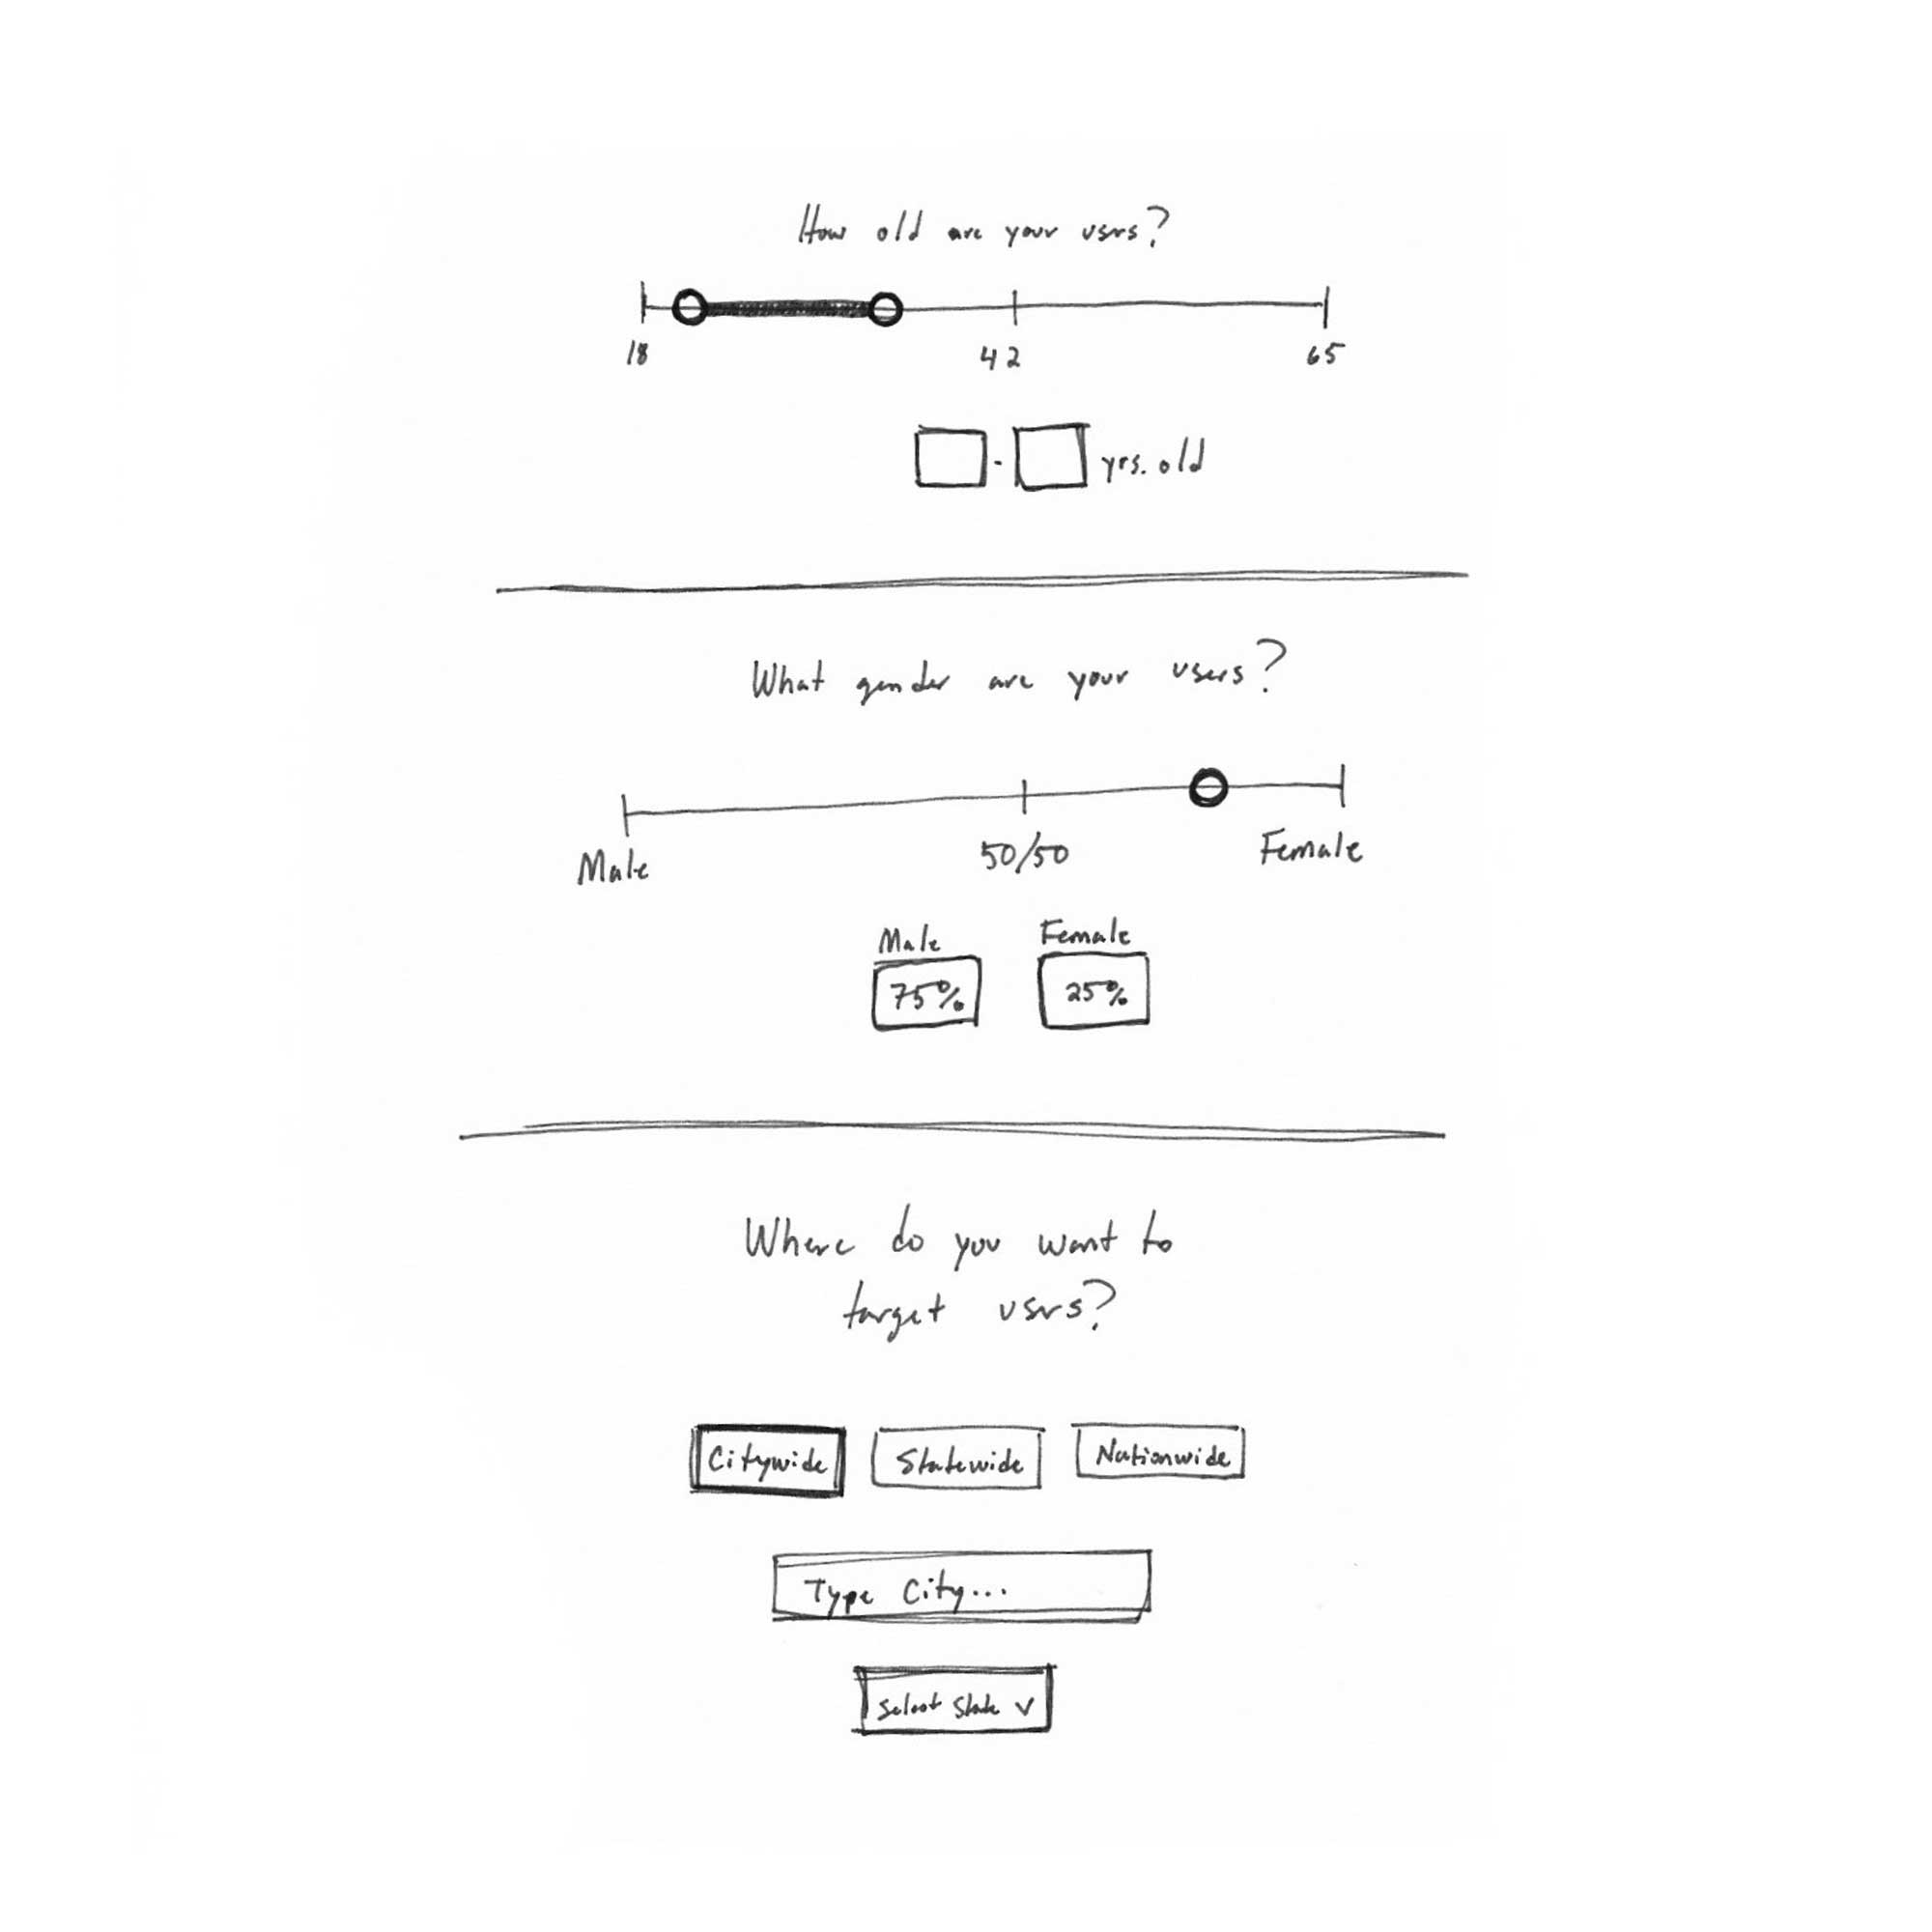 How old are your usrs?
18 42 65
- yrs. old
What gender are your users?
Male 50/50 Female
Male Female
75% 25%
Where do you want to
target usrs?
Citywide Statewide Nationwide
Type City...
Select State V